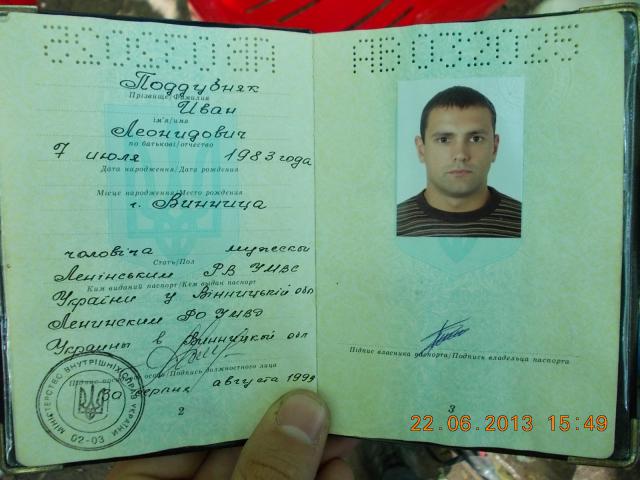 Поддубняк
Прізвище/Фамилия
Иван
ім'я/имя
Леонидович
по батькові/отчество
7 июля 1983 года
Дата народження/Дата рождения
Місце народження/Место рождения
г. Винница
чоловіча мужской
Стать/Пол
Ленінським РВ УМВС
Ким виданий паспорт/Кем выдан паспорт
України у Вінницькій обл
Ленинским РО УМВД
Украины в Винницкой обл
особи/Подпись должностного лица
30 серпня августа 1999
МІНІСТЕРСТВО ВНУТРІШНІХ СПРАВ УКРАЇНИ
02-03
2
АВ 032025
Підпис власника паспорта/Подпись владельца паспорта
3
22.06.2013 15:49